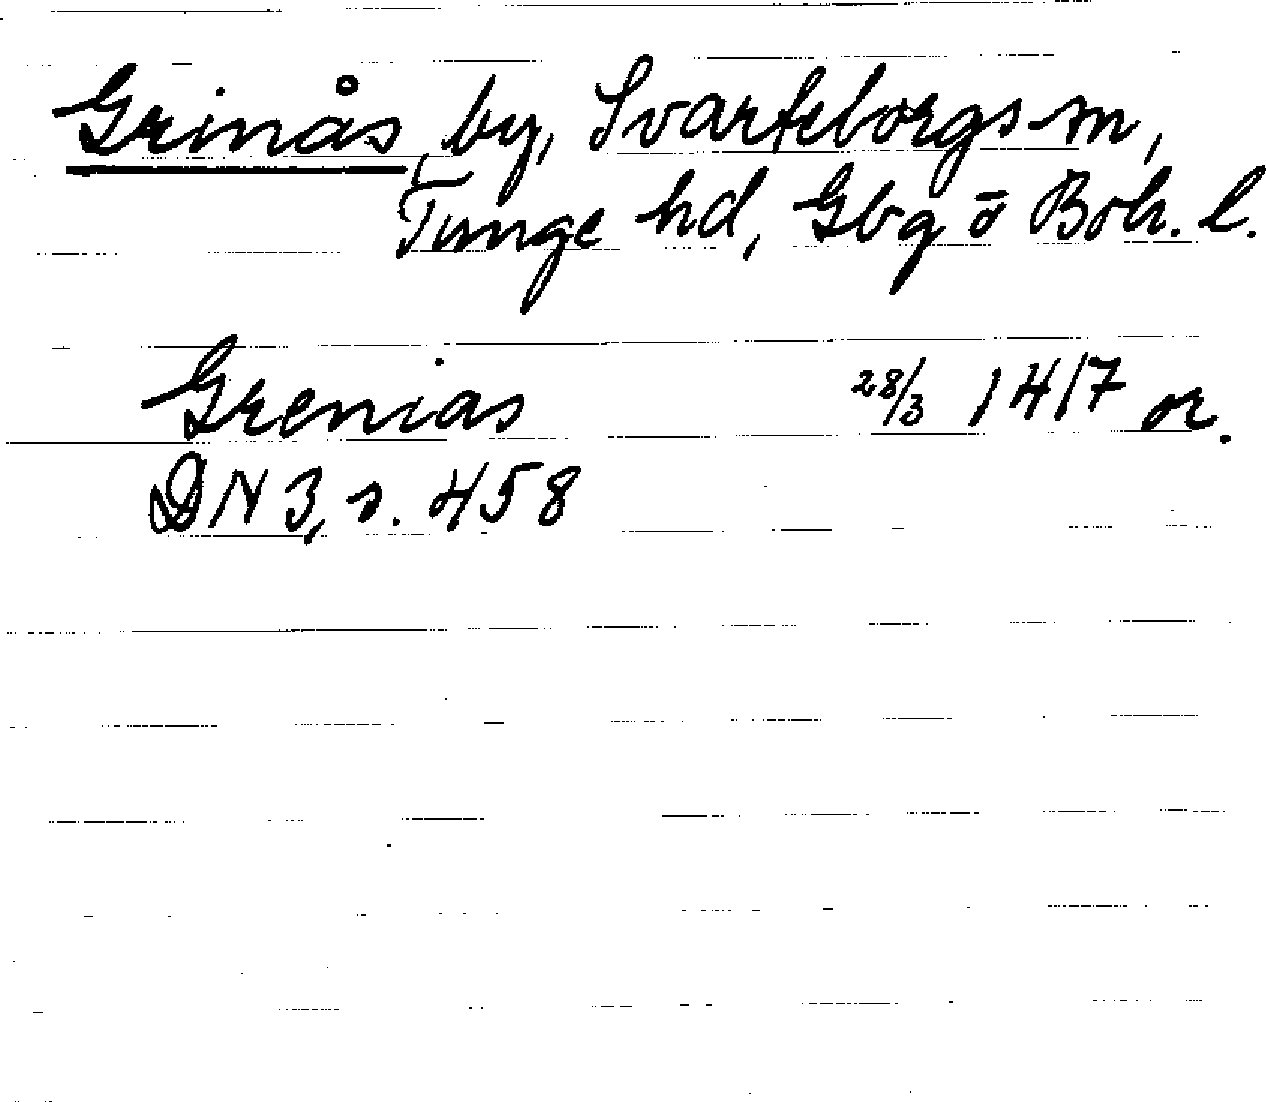 Grinås, by, Svarteborgs sn,
Tunge hd, Gbg ō Boh. l.
Grenias 28/3 1417 or.
DN 3, s. 458